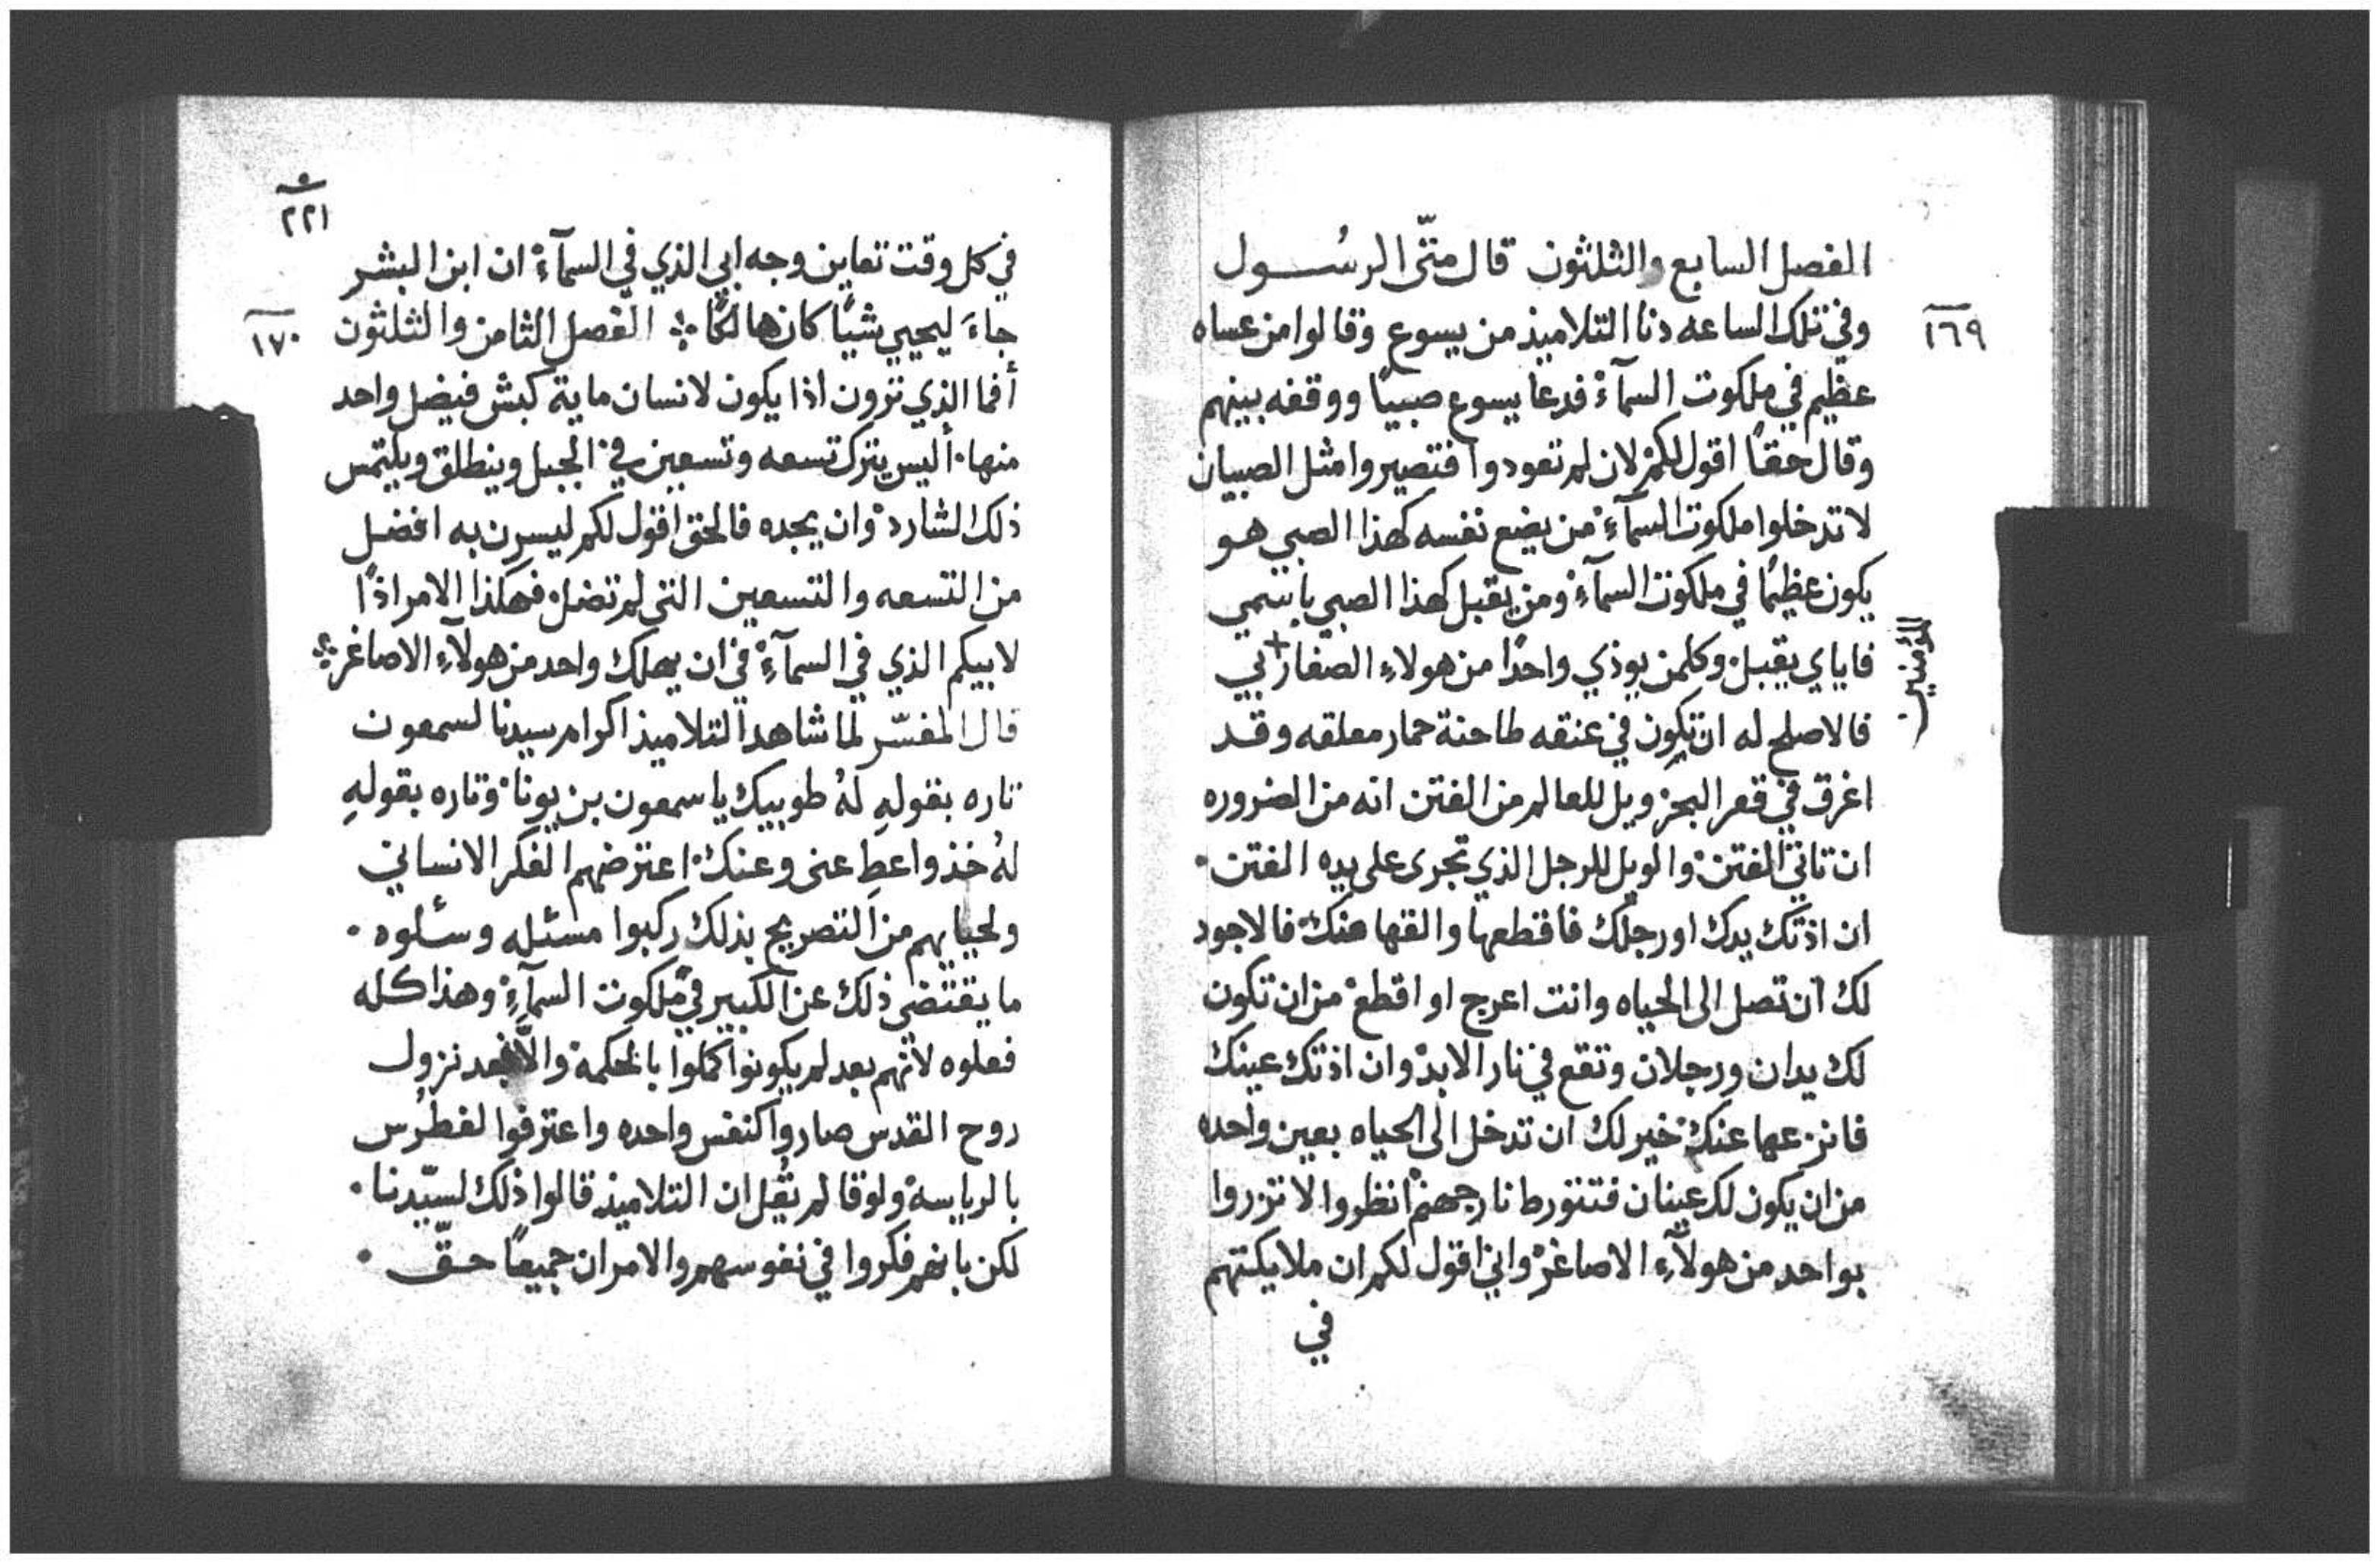 الفصل السابع والثلثون قال متّى الرسُول
١٦٩
وفي تلك الساعه دنا التلاميذ من يسوع وقالوا من عساه
عظيم في ملكوت السمآء فدعا يسوع صبيًا ووقفه بينهم
وقال حقًا اقول لكم لان لم تعودوا فتصيروا مثل الصبيان
لا تدخلوا ملكوت السمآء من يضع نفسه كهذا الصبي هو
يكون عظيمًا في ملكوت السمآء ومن يقبل كهذا الصبي باسمي
فاياي يقبل وكلمن يوذي واحدًا من هولاء الصغار + بي
المؤمنين
فالاصلح له ان تكون في عنقه طاحنة حمار معلقه وقد
اغرق في قعر البحر ويل للعالم من الفتن انه من الضروره
ان تاتي الفتن والويل للرجل الذي تجرى على يده الفتن ٠
ان اذتك يدك او رجلك فاقطعها والقها عنك فالاجود
لك ان تصل الى الحياه وانت اعرج او اقطع من ان تكون
لك يدان ورجلان وتقع في نار الابد وان اذتك عينك
فانزعها عنك خير لك ان تدخل الى الحياه بعين واحده
من ان يكون لك عينان فتتورط نار جهنم انظروا لا تزروا
بواحد من هولآء الاصاغر واني اقول لكم ان ملايكتهم
في
٢٢١
في كل وقت تعاين وجه ابي الذي في السمآء ان ابن البشر
جاءَ ليحيي شيًا كان هالكًا ⁘ الفصل الثامن والثلثون
١٧٠
أفما الذي ترون اذا يكون لانسان ماية كبش فيضل واحد
منها ٠ أليس يترك تسعه وتسعين في الجبل وينطلق ويلتمس
ذلك الشارد وان يجده فالحق اقول لكم ليسرن به افضل
من التسعه والتسعين التى لم تضل فهكذا الامر اذًا
لابيكم الذي في السمآء في ان يهلك واحد من هولآء الاصاغر ⁘
قال المفسّر لما شاهد التلاميذ اكرام سيدنا لسمعون
تاره بقولهِ لهُ طوبيك يا سمعون بن يونا وتاره بقولهِ
لهُ خذ واعطِ عنى وعنك اعترضهم الفكر الانساني
ولحيايهم من التصريح بذلك ركبوا مسئله وسألوه ٠
ما يقتضي ذلك عن الكبير في ملكوت السمآء وهذا كله
فعلوه لانهم بعد لم يكونوا كملوا بالحكمه والّا فبعد نزول
روح القدس صاروا كنفس واحده واعترفوا لفطرُس
بالرياسه ولوقا لم يقُل ان التلاميذ قالوا ذلك لسيّدنا ٠
لكن بانهم فكروا في نفوسهم والامران جميعًا حقّ ٠